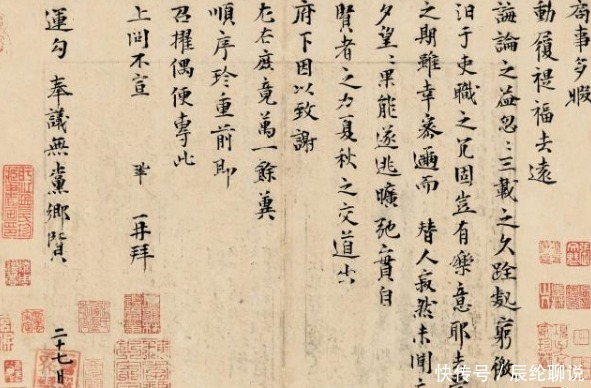 局事多暇
動履禔福去遠
誨論之益忽〻三載之久跧處窮徼
汩于吏職之冗固豈有樂意耶去
之期雖幸密邇而替人寂然未聞
夕望〻果能遂逃曠弛實自
賢者之力夏秋之交道出
府下因以致謝
左右庶竟萬一餘冀
順序珍重前即
召擢偶便專此
上問不宣 鞏再拜
運勾奉議無黨鄉賢 二十七日
快传号/辰纶聊说